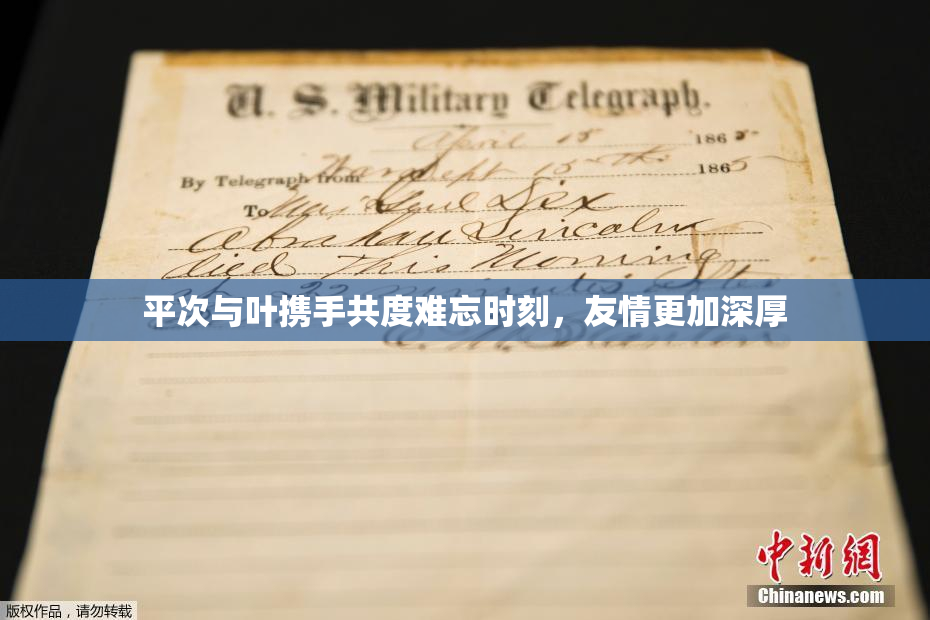 U. S. Military Telegraph.
April 15 1865
By Telegraph from War Dept 15th 1865
To Maj Genl Dix
Abraham Lincoln
died This Morning
at 22 minutes after
平次与叶携手共度难忘时刻，友情更加深厚
E. M. Stanton
中新网
Chinanews.com
版权作品，请勿转载